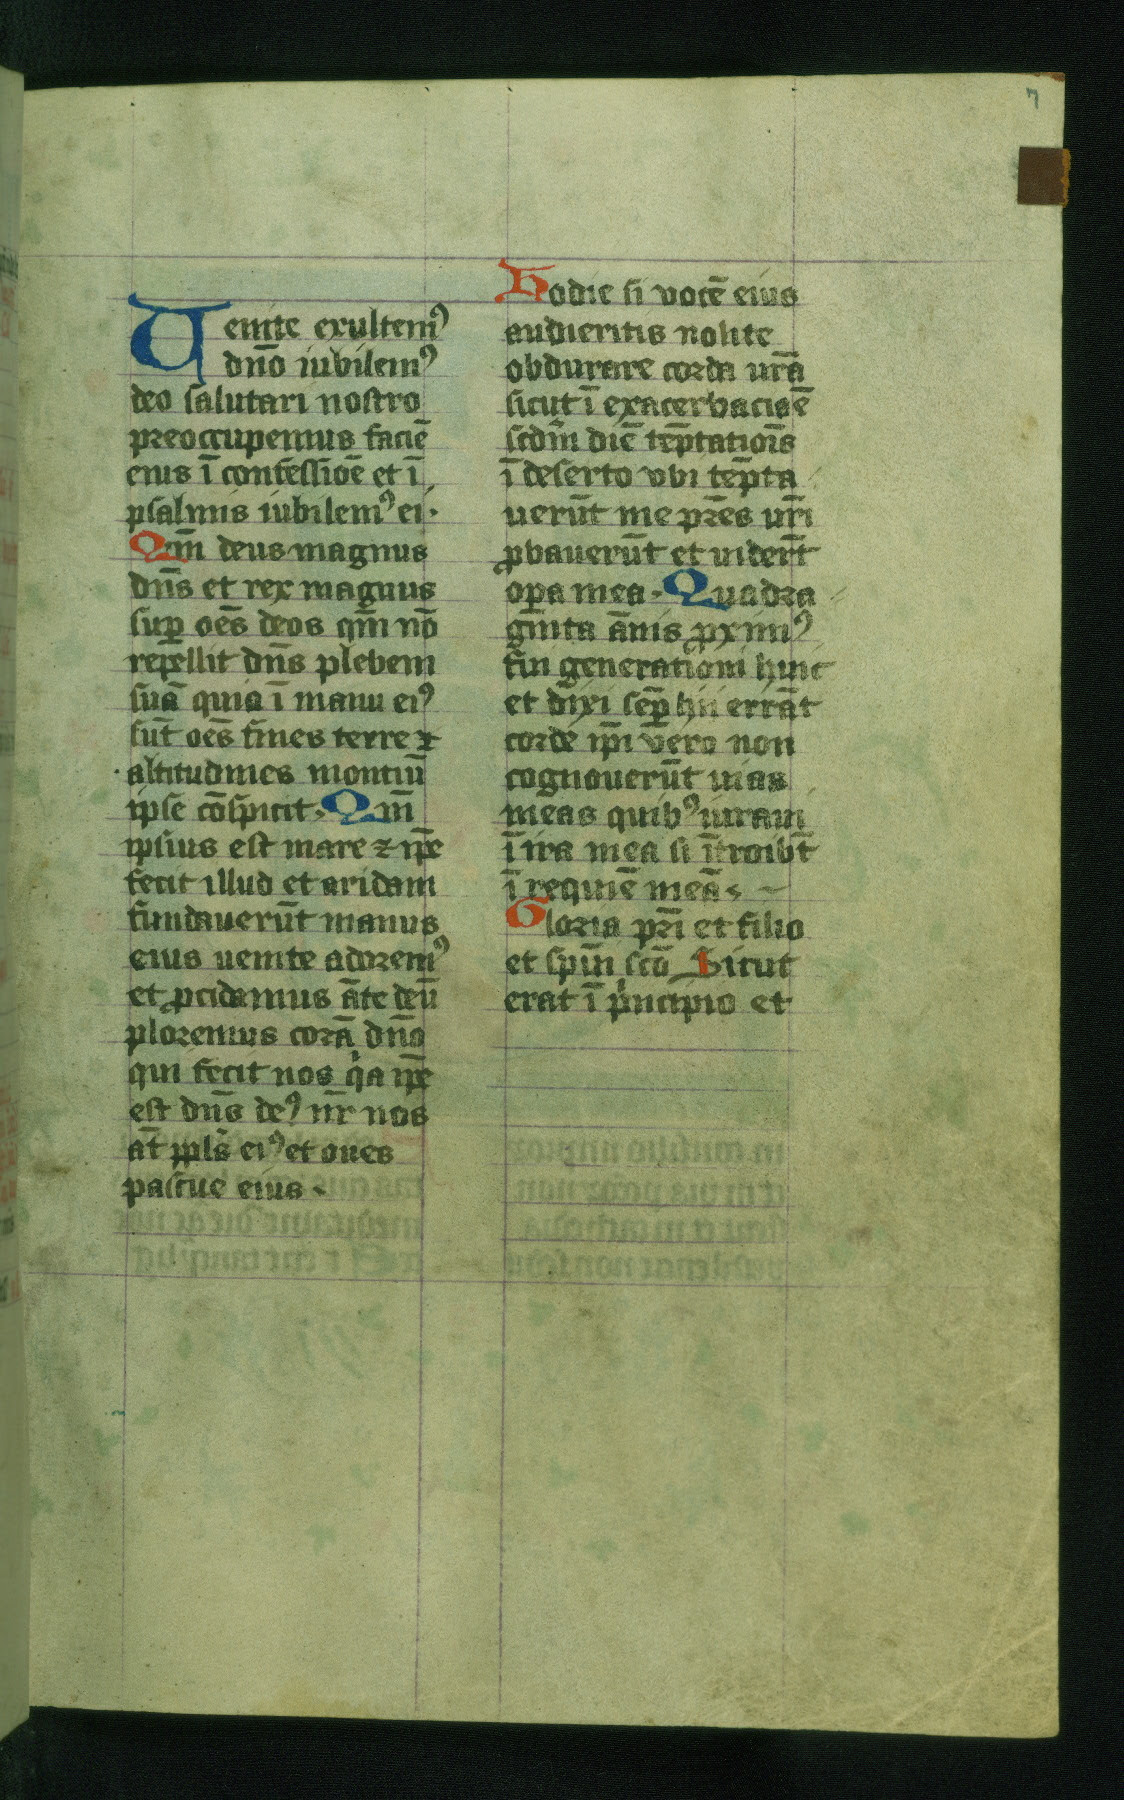 7
Uenite exultemꝰ
dn̄o iubilemꝰ
deo salutari nostro
preoccupemus faciē
eius ī confessiōe et ī
psalmis iubilemꝰ ei·
Qm̄ deus magnus
dn̄s et rex magnus
suꝑ oēs deos qm̄ nō
repellit dn̄s plebem
suā quia ī manu eiꝰ
sūt oēs fines terre ⁊
altitudines montiū
ipse cōspicit· Qm̄
ipsius est mare ⁊ ip̄e
fecit illud et aridam
fundauerūt manus
eius uenite adoremꝰ
et ꝓcidamus āte deū
ploremus corā dn̄o
qui fecit nos qͥa ip̄e
est dn̄s deꝰ nr̄ nos
āt ppl̄s eiꝰ et oues
pascue eius·
Hodie si vocē eius
audieritis nolite
obdurare corda ur̄a
sicut ī exacerbaciōē
scdm̄ diē tēptatiōis
ī deserto vbi tēpta
uerūt me pr̄es ur̄i
ꝓbauerūt et uider̄t
oꝑa mea· Quadra
gīnta ānis ꝓximꝰ
fui generationi huic
et dīxi semꝑ hii errāt
corde ip̄i vero non
cognouerūt uias
meas quibꝰ iuraui
ī ira mea si ītroibt̄
ī requiē meā
Gloria pr̄i et filio
et spūi scō Sicut
erat ī pͥncipio et